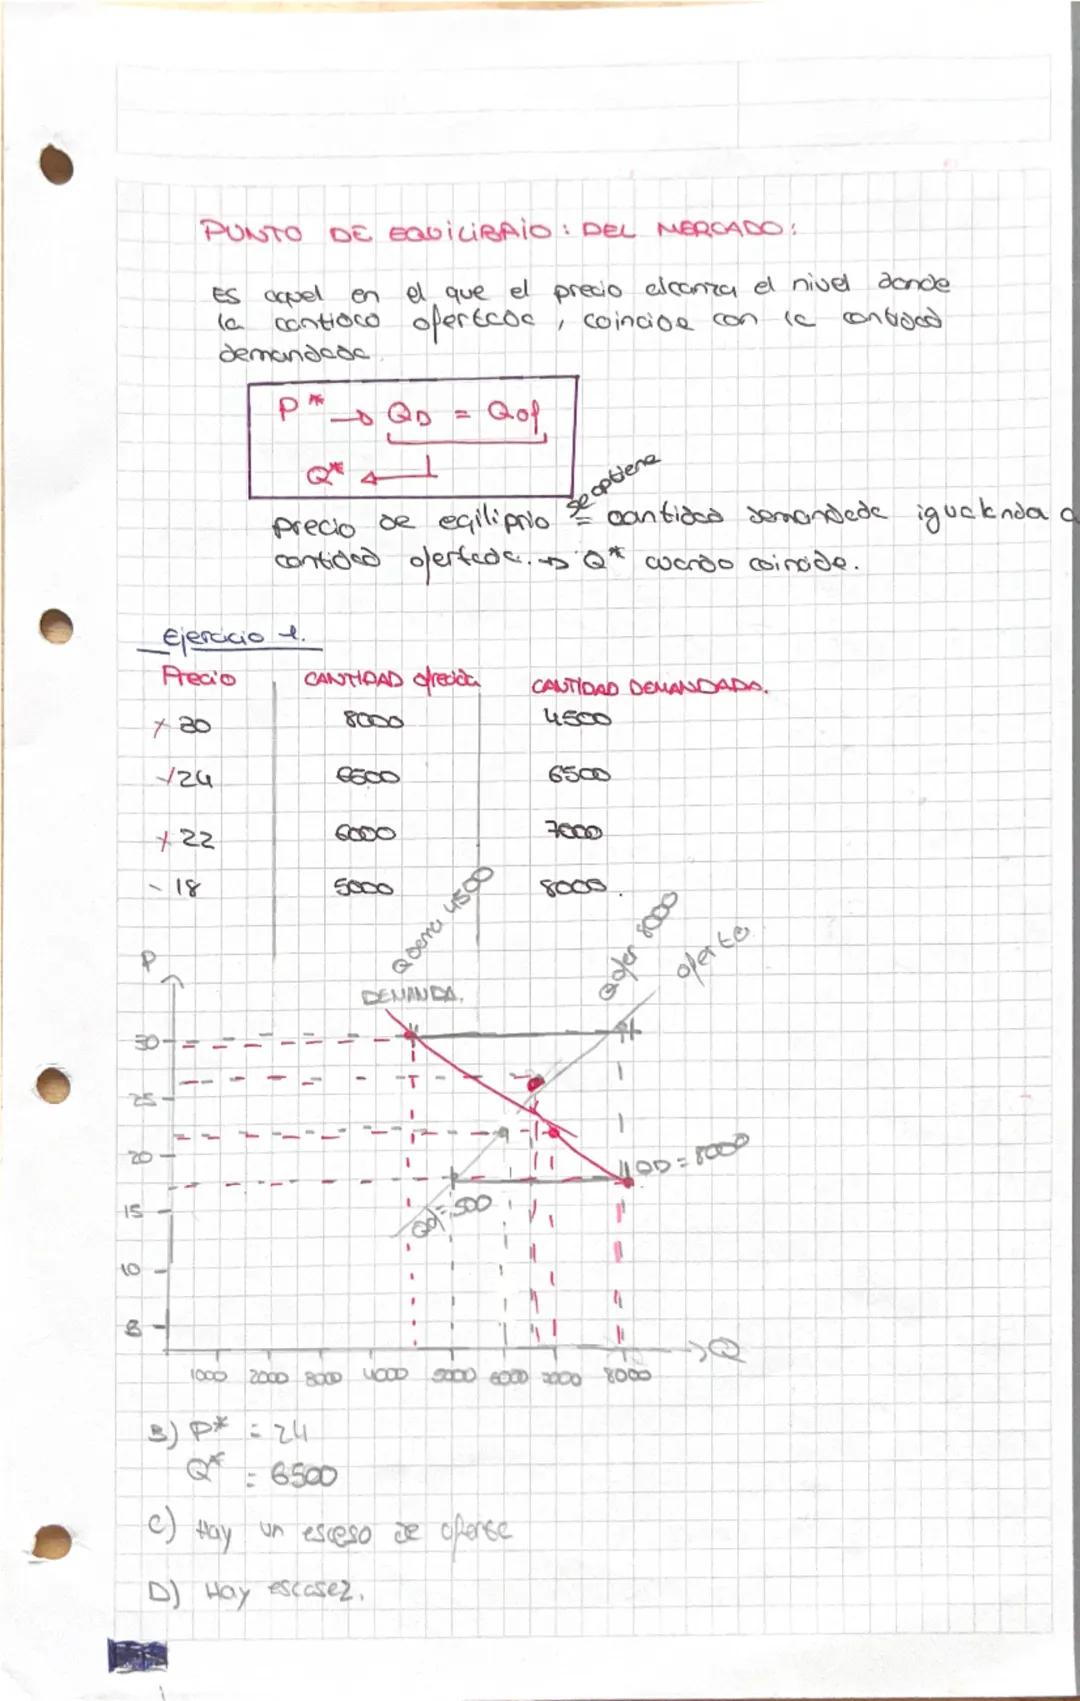 PUNTO DE EQUILIBRIO : DEL MERCADO :
Es aquel en el que el precio alcanza el nivel donde
la cantidad ofertada , coincide con la cantidad
demandada.
P* → QD = Qof
Q* ←
se optiene
precio de eqiliprio = cantidad demandada igualanda a
cantidad ofertada. → Q* cuando coincide.
Ejercicio 1.
Precio CANTIDAD ofrecida CANTIDAD DEMANDADA.
30 8000 4500
24 6500 6500
22 6000 7000
- 18 5000 8000.
Qdema 4500
Qofer 8000
oferta
P
DEMANDA.
30
25
20
QD = 8000
15
Qof = 500
10
8
→ Q
1000 2000 3000 4000 5000 6000 7000 8000
B) P* = 24
Q* = 6500
C) Hay un esceso de oferta
D) Hay escasez.